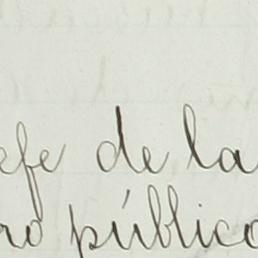 efe de la
ro público